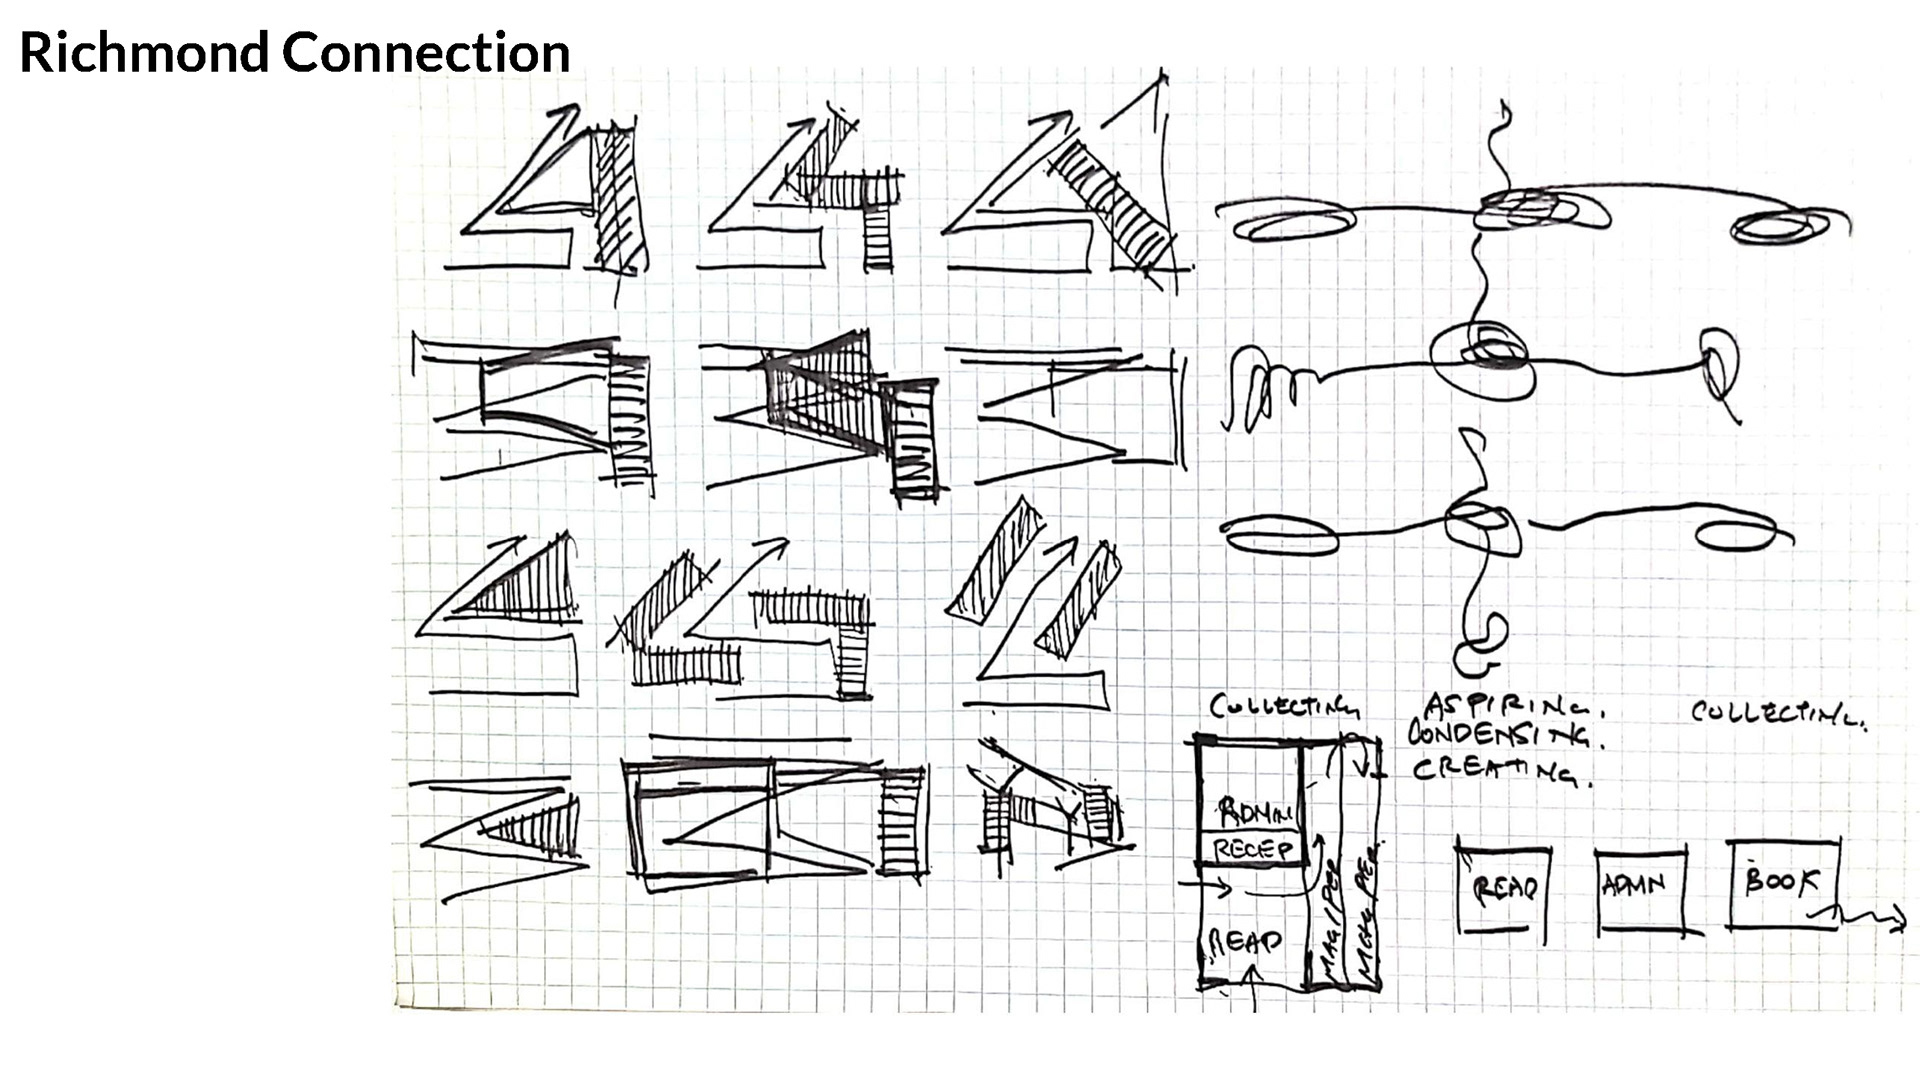 Richmond Connection
COLLECTING
ASPIRING.
CONDENSING.
CREATING.
COLLECTING.
ADMN
RECEP
READ
MAG/PER
READ
ADMN
BOOK